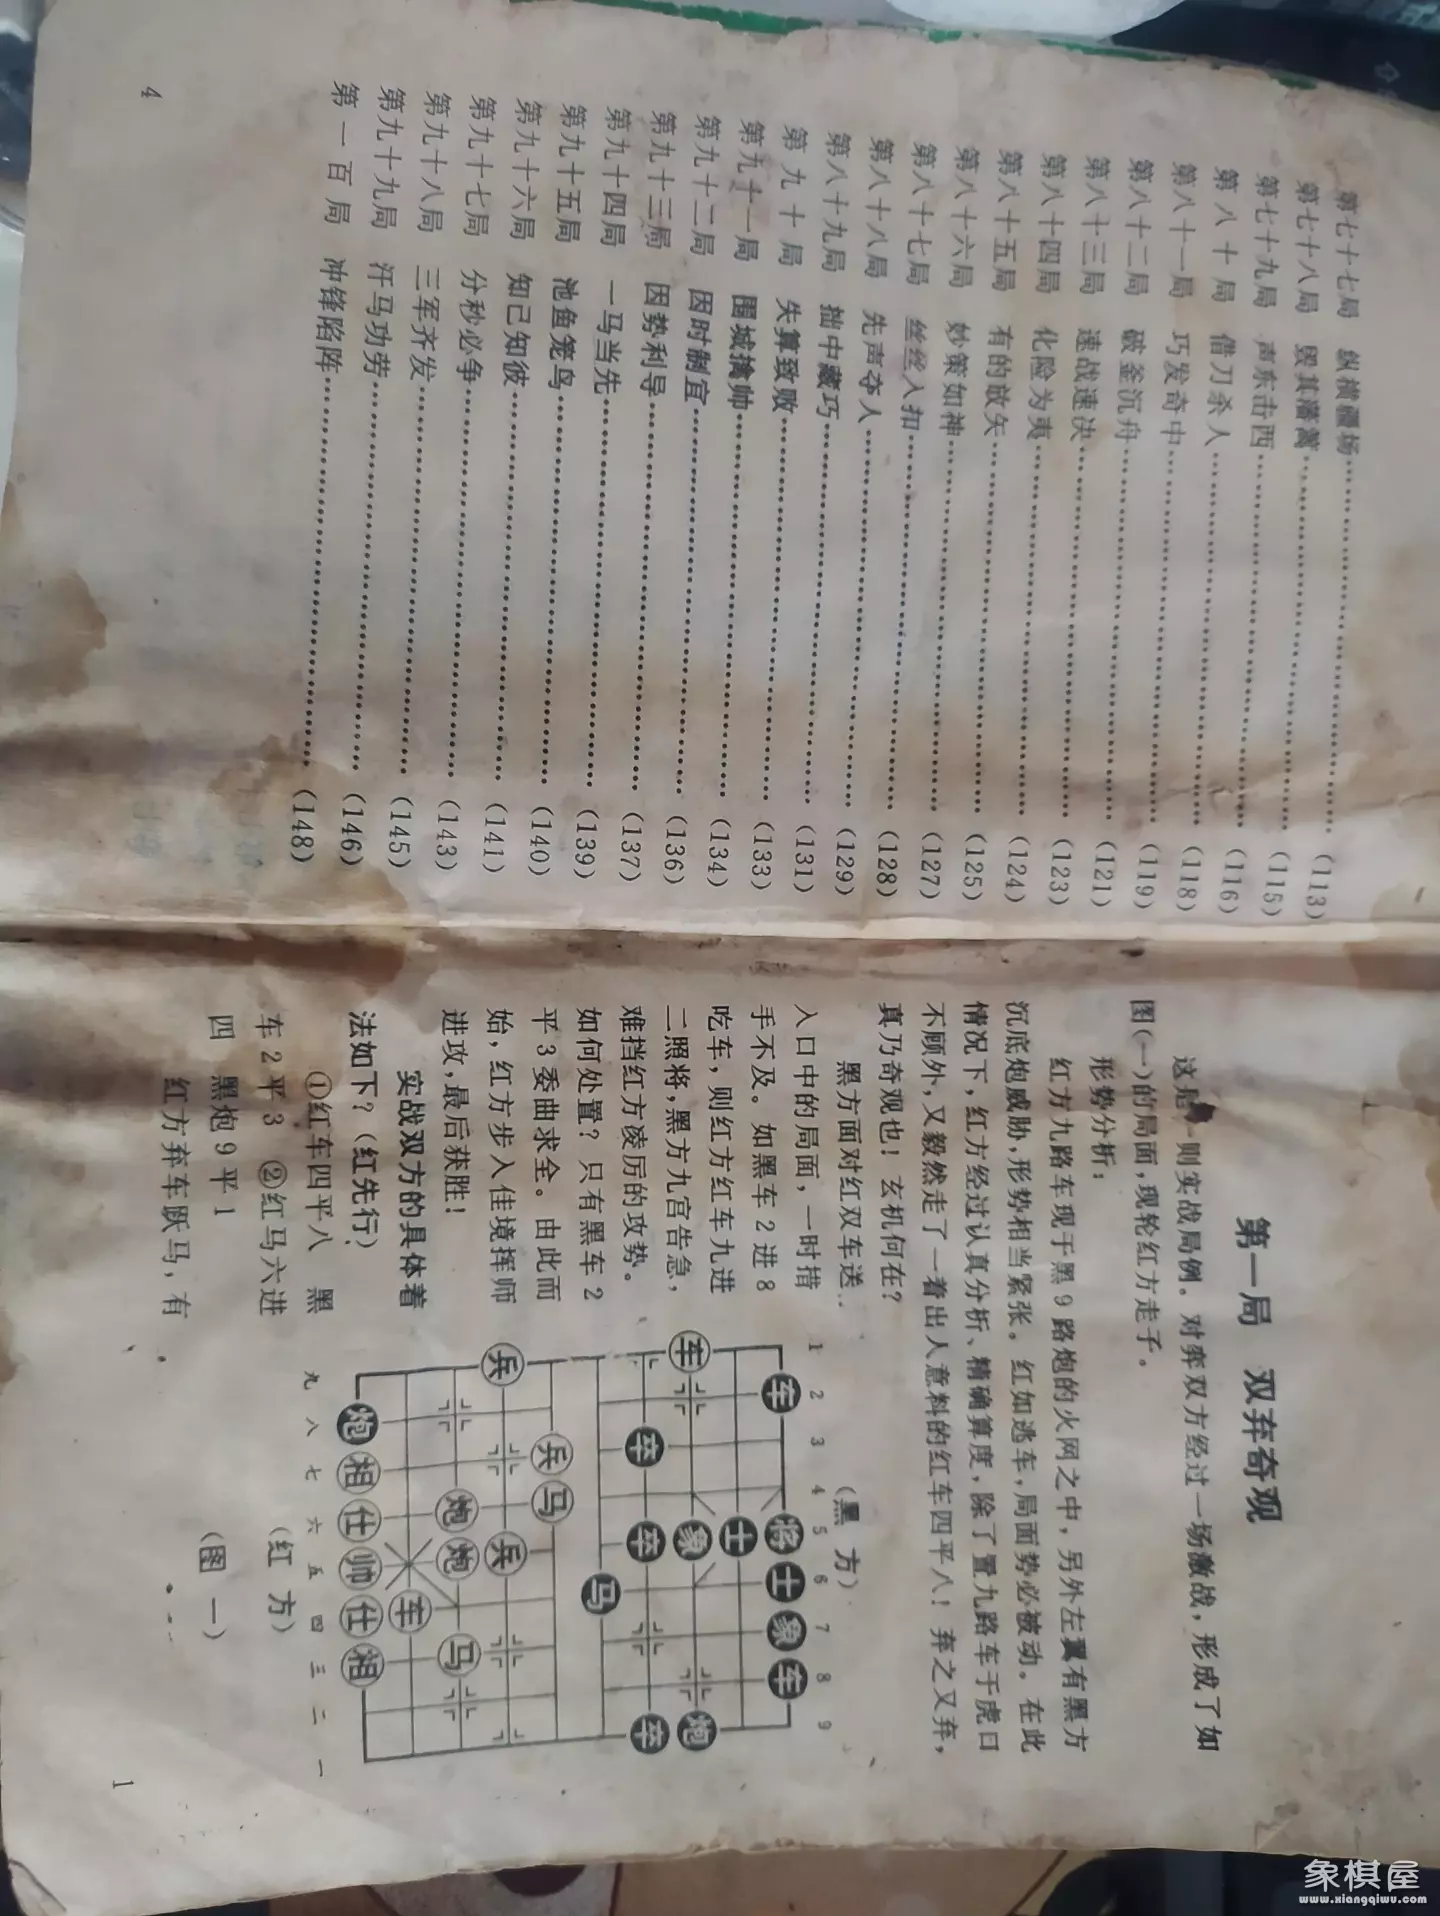 第七十七局 纵横疆场……(113)
第七十八局 毁其藩篱……(115)
第七十九局 声东击西……(116)
第八十局 借刀杀人……(118)
第八十一局 巧发奇中……(119)
第八十二局 破釜沉舟……(121)
第八十三局 速战速决……(123)
第八十四局 化险为夷……(124)
第八十五局 有的放矢……(125)
第八十六局 妙策如神……(127)
第八十七局 丝丝入扣……(128)
第八十八局 先声夺人……(129)
第八十九局 拙中藏巧……(131)
第九十局 失算致败……(133)
第九十一局 围城擒帅……(134)
第九十二局 因时制宜……(136)
第九十三局 因势利导……(137)
第九十四局 一马当先……(139)
第九十五局 池鱼笼鸟……(140)
第九十六局 知己知彼……(141)
第九十七局 分秒必争……(143)
第九十八局 三军齐发……(145)
第九十九局 汗马功劳……(146)
第一百局 冲锋陷阵……(148)
4
第一局 双弃奇观
这是一则实战局例。对弈双方经过一场激战，形成了如
图(一)的局面，现轮红方走子。
形势分析：
红方九路车现于黑9路炮的火网之中，另外左翼有黑方
沉底炮威胁，形势相当紧张。红如逃车，局面势必被动。在此
情况下，红方经过认真分析、精确算度，除了置九路车于虎口
不顾外，又毅然走了一着出人意料的红车四平八！弃之又弃，
真乃奇观也！玄机何在？
黑方面对红双车送
入口中的局面，一时措
手不及。如黑车2进8
吃车，则红方红车九进
二照将，黑方九宫告急，
难挡红方凌厉的攻势。
如何处置？只有黑车2
平3委曲求全。由此而
始，红方步入佳境挥师
进攻，最后获胜！
实战双方的具体着
法如下？(红先行)
①红车四平八 黑
车2平3 ②红马六进
四 黑炮9平1
红方弃车跃马，有
(黑方)
1 2 3 4 5 6 7 8 9
车 将 士 象 车
士
车 象 炮
卒 卒 卒
马
兵 马
兵 兵
炮 炮 马
车
炮 相 仕 帅 仕 相
九 八 七 六 五 四 三 二 一
(红方)
(图一)
1
象棋屋
www.xiangqiwu.com